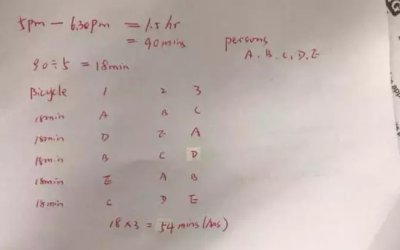 5pm – 6.30pm = 1.5 hr
= 90 mins
persons
A, B, C, D, E
90 ÷ 5 = 18min
Bicycle 1 2 3
18min A B C
18min D E A
18min B C D
18min E A B
18min C D E
18 × 3 = 54 mins (Ans)